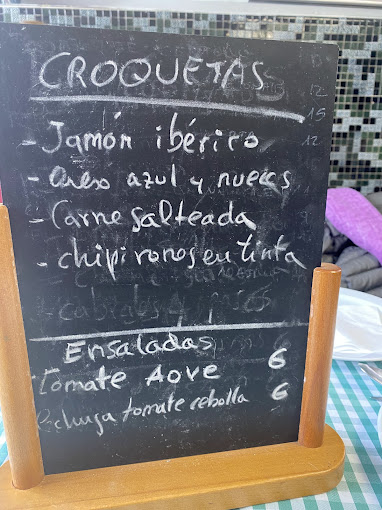 CROQUETAS
- Jamón ibérico
- Queso azul y nueces
- Carne salteada
- chipirones en tinta
Ensaladas
Tomate Aove 6
Lechuga tomate cebolla 6